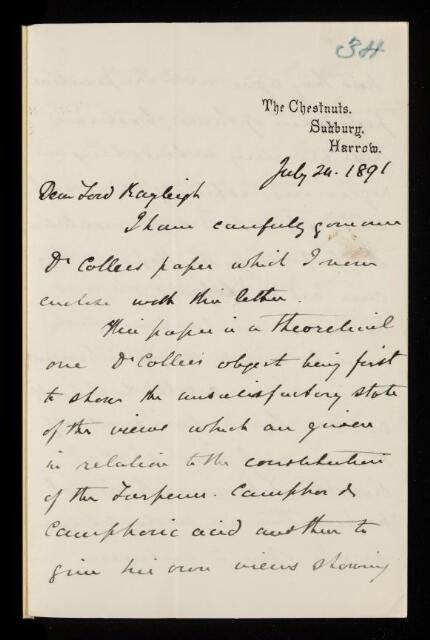 34
The Chestnuts.
Sudbury.
Harrow.
July 24. 1891
Dear Lord Rayleigh
I have carefully gone over
Dr Collies paper which I now
enclose with this letter.
This paper is a theoretical
one Dr Collies object being first
to show the unsatisfactory state
of the views which are given
in relation to the constitution
of the Terpenes. Camphor &
Camphoric acid and then to
give his own views showing